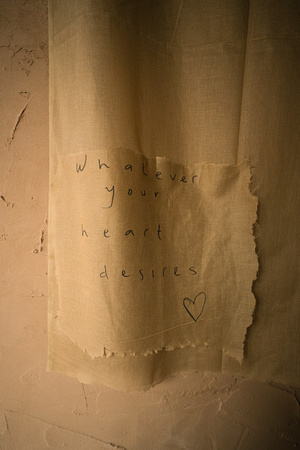 Whatever
your
heart
desires